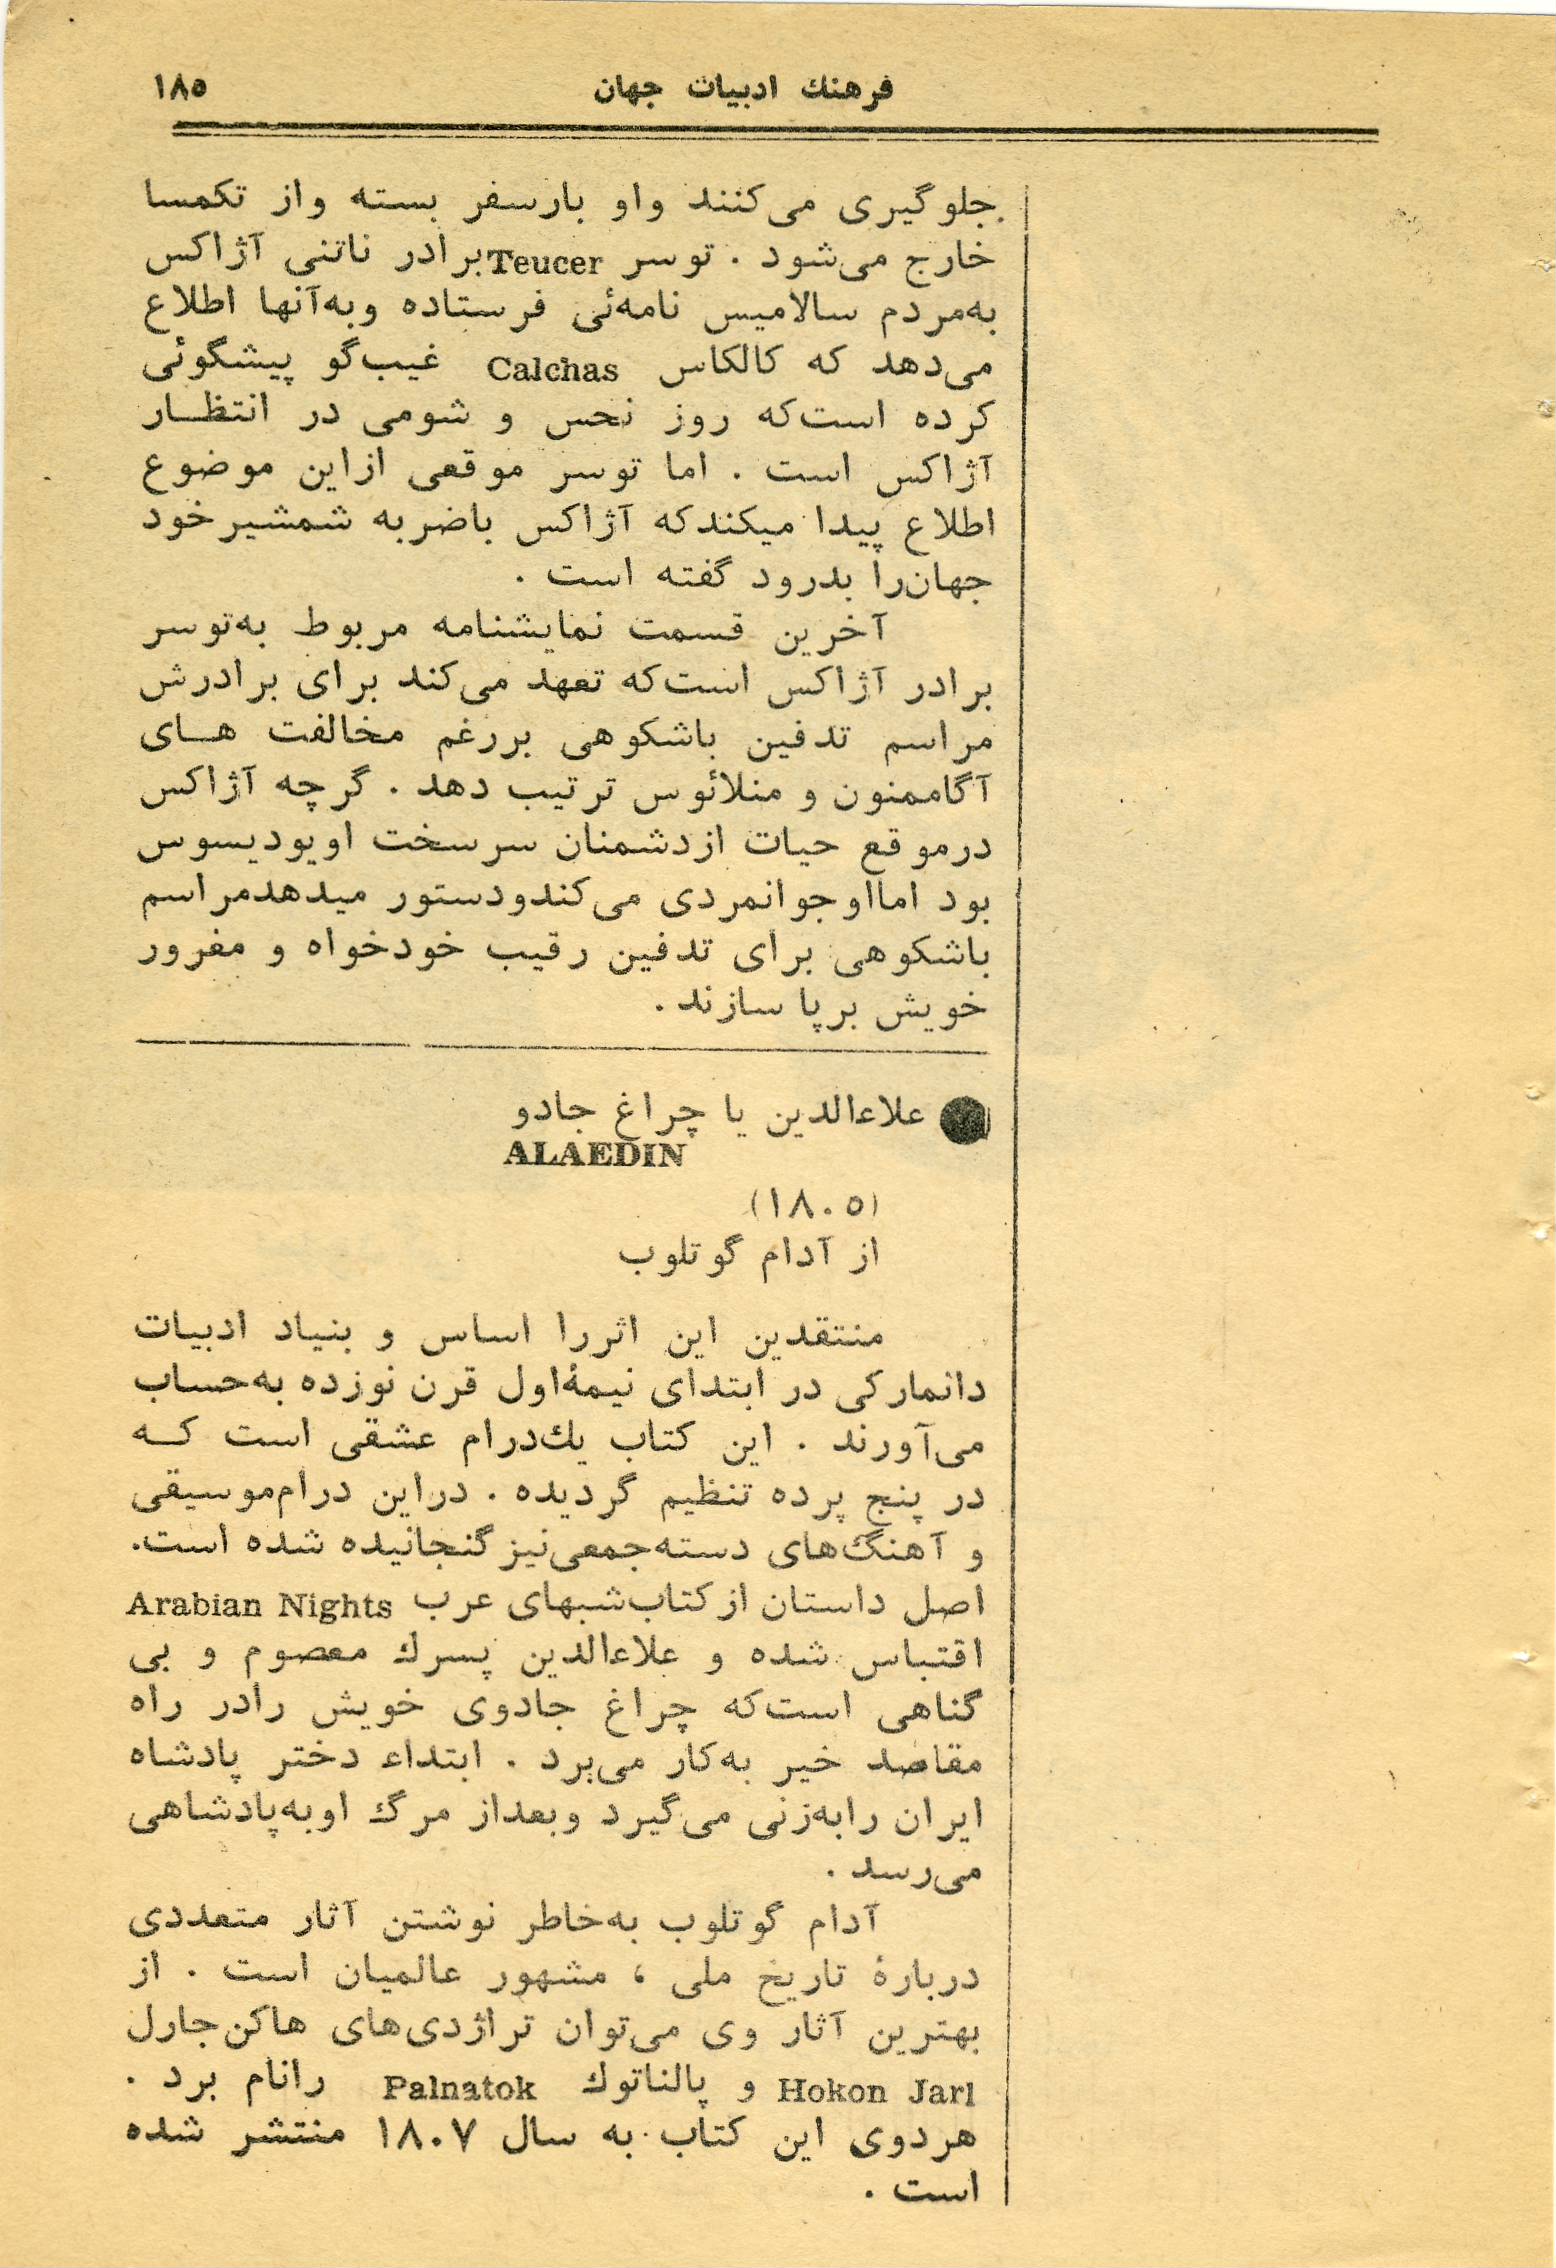 فرهنك ادبيات جهان ۱۸۵
جلوگیری می‌کنند واو بارسفر بسته واز تکمسا
خارج می‌شود . توسر Teucer برادر ناتنی آژاکس
به‌مردم سالامیس نامه‌ئی فرستاده وبه‌آنها اطلاع
می‌دهد که کالکاس Calchas غیب‌گو پیشگوئی
کرده است‌که روز نحس و شومی در انتظـار
آژاکس است . اما توسر موقعی ازاین موضوع
اطلاع پیدا میکندکه آژاکس باضربه شمشیرخود
جهان‌را بدرود گفته است .
آخرین قسمت نمایشنامه مربوط به‌توسر
برادر آژاکس است‌که تعهد می‌کند برای برادرش
مراسم تدفین باشکوهی بررغم مخالفت هـای
آگاممنون و منلائوس ترتیب دهد . گرچه آژاکس
درموقع حیات ازدشمنان سرسخت اویودیسوس
بود امااوجوانمردی می‌کندودستور میدهدمراسم
باشکوهی برای تدفین رقیب خودخواه و مغرور
خویش برپا سازند .
علاءالدین یا چراغ جادو
ALAEDIN
(۱۸۰۵)
از آدام گوتلوب
منتقدین این اثررا اساس و بنیاد ادبیات
دانمارکی در ابتدای نیمهٔ‌اول قرن نوزده به‌حساب
می‌آورند . این کتاب یك‌درام عشقی است کـه
در پنج پرده تنظیم گردیده . دراین درام‌موسیقی
و آهنگ‌های دسته‌جمعی‌نیز گنجانیده شده است.
اصل داستان ازکتاب‌شبهای عرب Arabian Nights
اقتباس شده و علاءالدین پسرك معصوم و بی
گناهی است‌که چراغ جادوی خویش رادر راه
مقاصد خیر به‌کار می‌برد . ابتداء دختر پادشاه
ایران رابه‌زنی می‌گیرد وبعداز مرگ اوبه‌پادشاهی
می‌رسد .
آدام گوتلوب به‌خاطر نوشتن آثار متعددی
دربارهٔ تاریخ ملی ، مشهور عالمیان است . از
بهترین آثار وی می‌توان تراژدی‌های هاکن‌جارل
Hokon Jarl و پالناتوك Palnatok رانام برد .
هردوی این کتاب به سال ۱۸۰۷ منتشر شده
است .